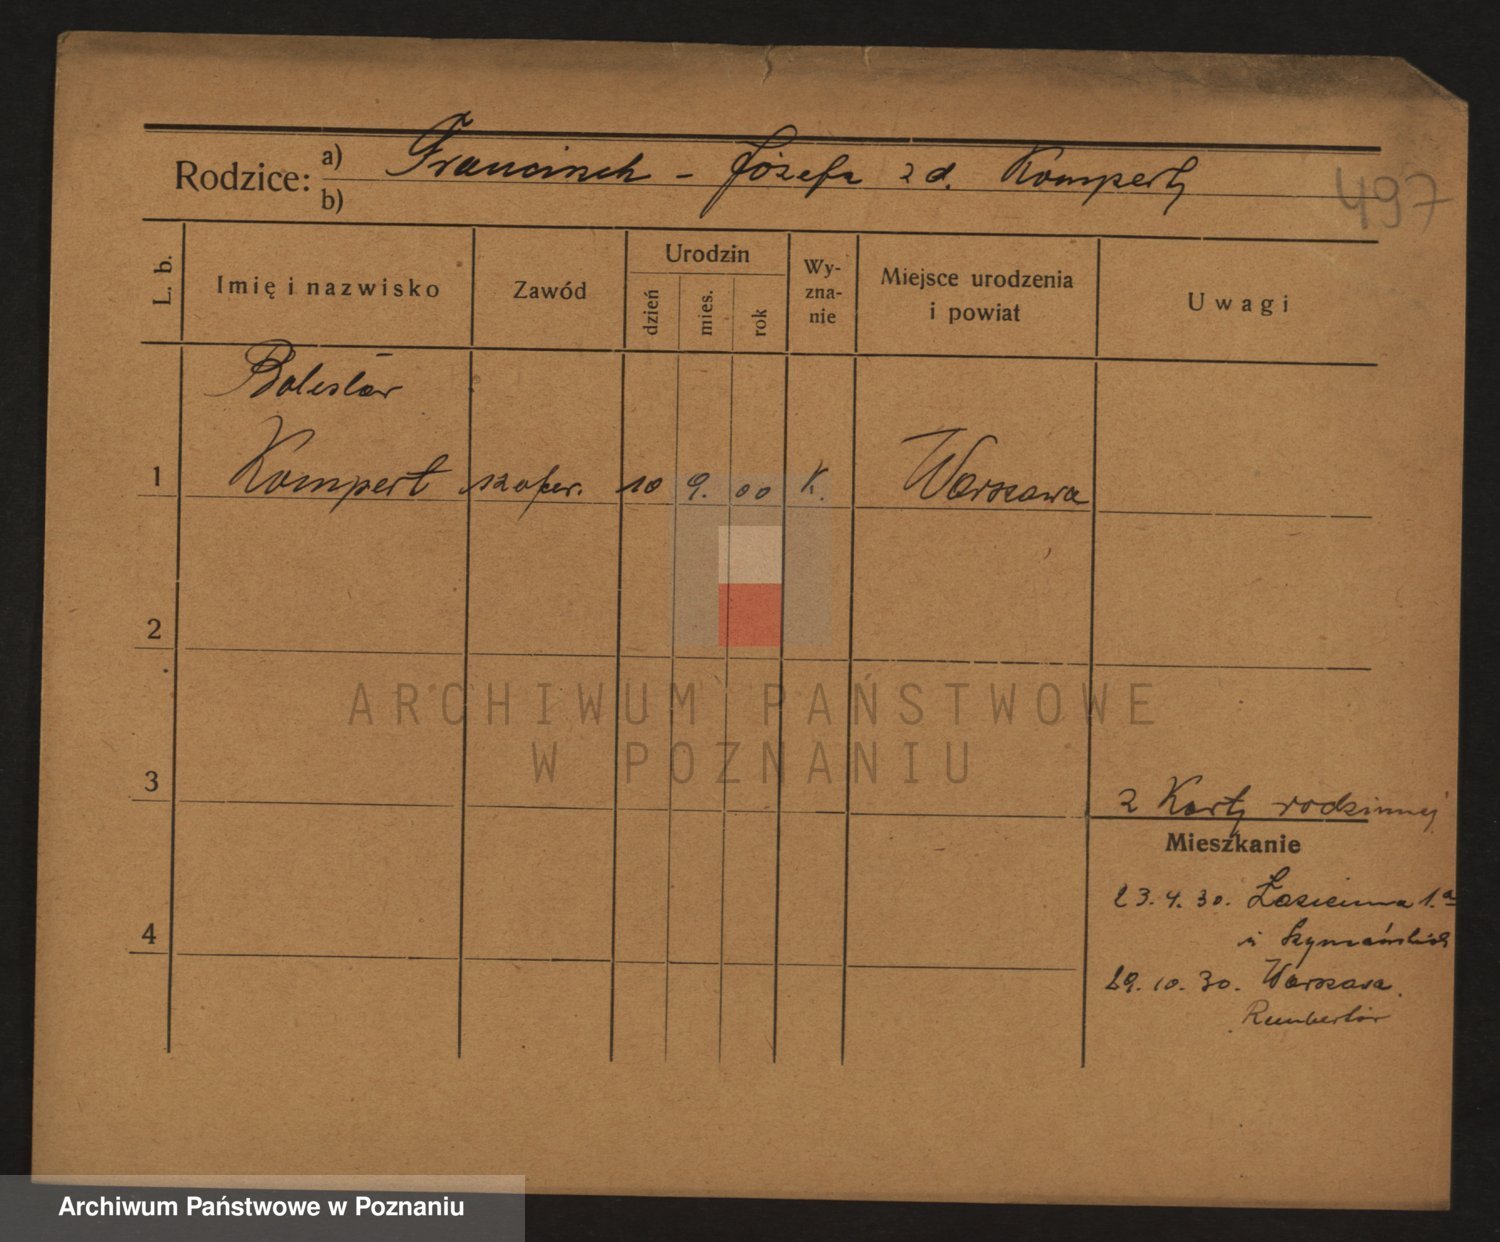 Rodzice: a) Franciszek - Józefa z d. Komperty
b)
497
L. b.
Imię i nazwisko
Zawód
Urodzin
dzień
mies.
rok
Wy-
zna-
nie
Miejsce urodzenia
i powiat
Uwagi
Bolesław
1 Kompert 10 9. 00 K. Warszawa
2
3
4
z Karty rodzinnej
Mieszkanie
23. 4. 30. Łazienna 1.a
u Szymańskich
29. 10. 30. Warszawa.
Rembertów
ARCHIWUM PAŃSTWOWE
W POZNANIU
Archiwum Państwowe w Poznaniu